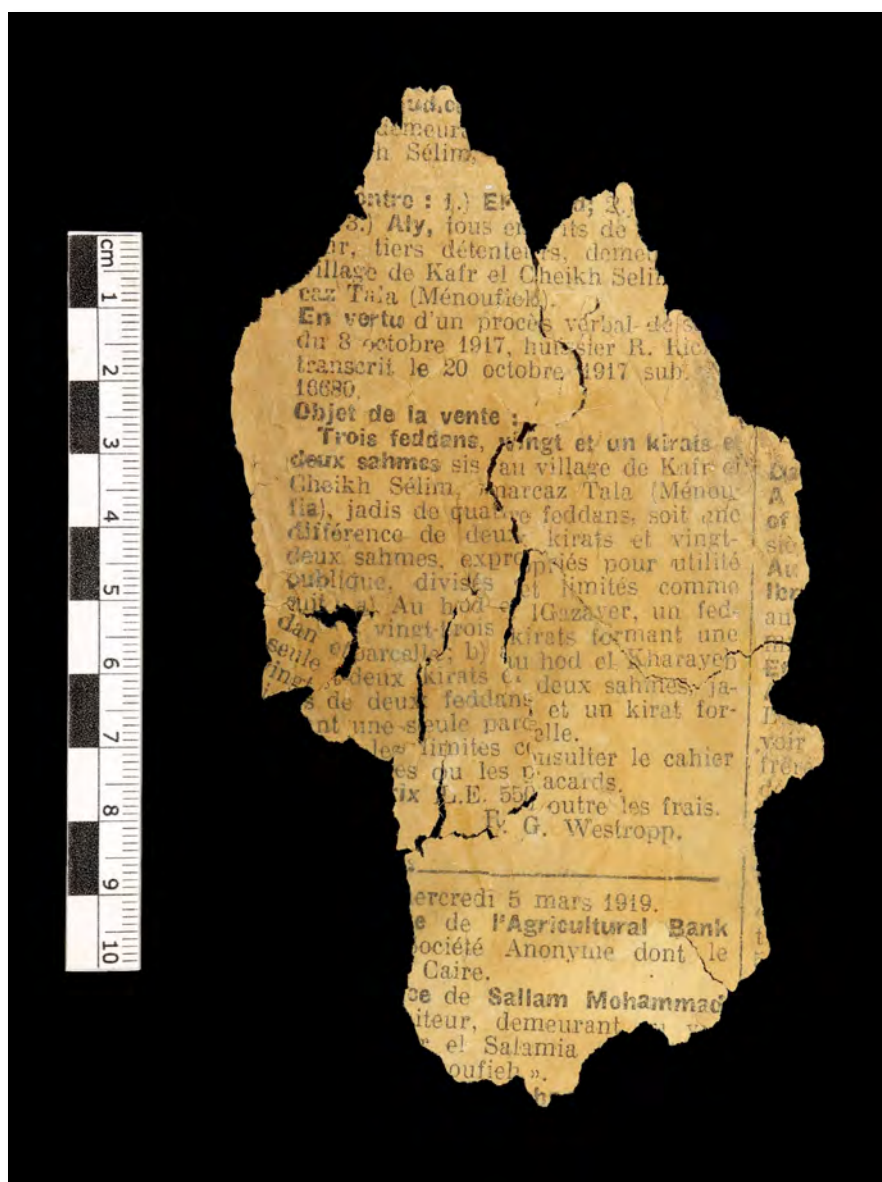 demeura
h Sélim,
ontre : 1.)
3.) Aly, tous
r, tiers détenteurs, deme
village de Kafr el Cheikh Selim
caz Tala (Ménoufieh).
En vertu d'un procès verbal de s
du 8 octobre 1917, huissier R. Ric
transcrit le 20 octobre 1917 sub.
16680.
Objet de la vente :
Trois feddans, vingt et un kirats et
deux sahmes sis au village de Kafr el
Cheikh Sélim, marcaz Tala (Ménou-
fia), jadis de quatre feddans, soit une
différence de deux kirats et vingt-
deux sahmes, expropriés pour utilité
publique, divisés et limités comme
suit : a) Au hod el Gazayer, un fed-
dan et vingt-trois kirats formant une
seule parcelle; b) au hod el Kharayeb
vingt deux kirats et deux sahmes, ja-
s de deux feddans et un kirat for-
ant une seule parcelle.
les limites consulter le cahier
es ou les placards.
rix L.E. 550 outre les frais.
G. Westropp.
ercredi 5 mars 1919.
e de l'Agricultural Bank
ociété Anonyme dont le
Caire.
ce de Sallam Mohammad
iteur, demeurant
el Salamia
oufieh ».
A
of
Au
Ibr
au
voir
cm
1
2
3
4
5
6
7
8
9
10